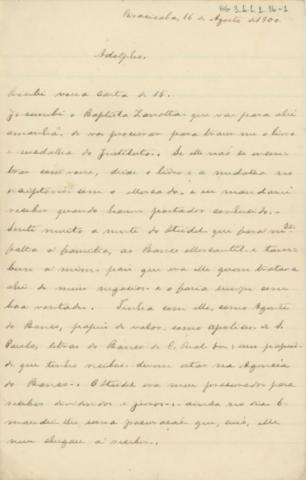 Piracicaba, 16 de Agosto de 1900
Adolpho.
Recebi vossa carta de 15.
Incumbi o Baptista Zanotta que vae para ahi
amanhã, de vos procurar para trazer-me o livro
e medalha do Instituto. Se elle não se
com vosco, deixe o livro e a medalha no
escriptorio sem o
receber quando houver portador conhecido.-
Sinto muito a morte do Steidel que fará
falta a familia, ao Banco Mercantil e tam-
bem a mim, pois que era elle quem tratava
ahi de meus negocios e o fazia sempre com
boa vontade. Tinha com elle, como Agente
do Banco, papeis de valor, como apolices de S.
Paulo, letras do Banco de C. Real
de que tenho recibos devem estar na Agencia
do Banco. O Steidel era meu procurador para
receber dividendos e juros, ainda no dia 6
mandei-lhe uma procuração que, creio, elle
nem chegou a receber.